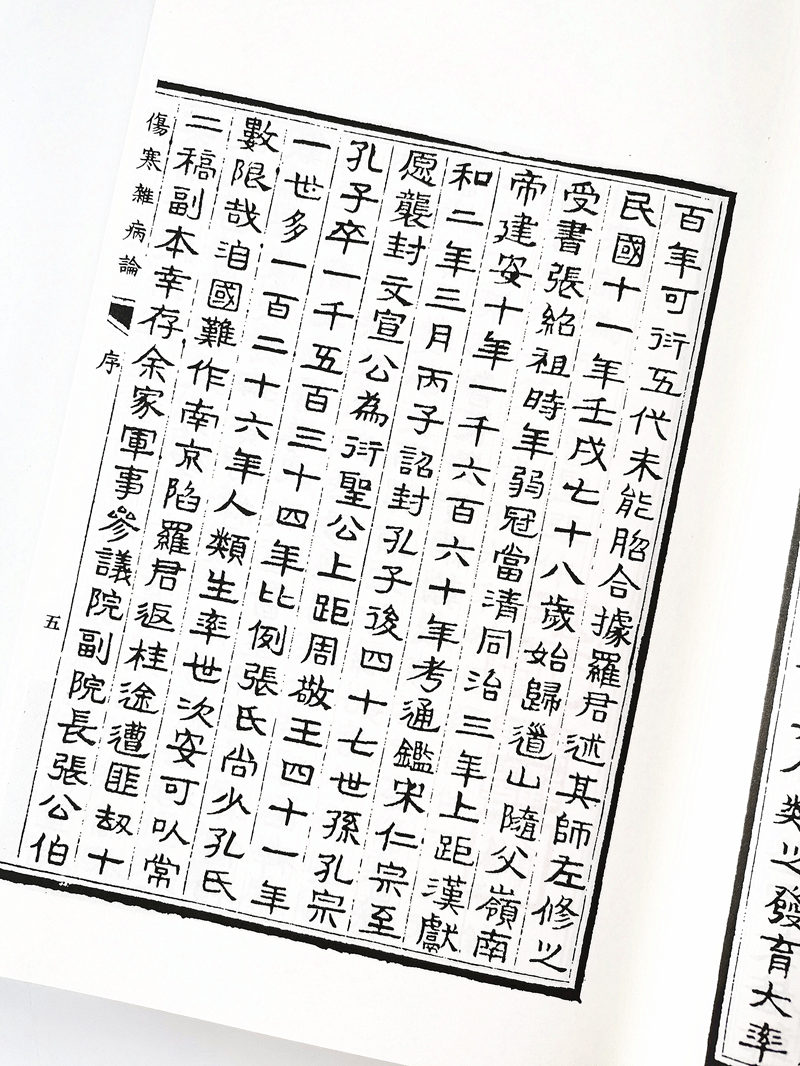 人類之發育大率
百年可衍五代未能脗合據羅君述其師左修之
民國十一年壬戌七十八歲始歸道山隨父嶺南
受書張紹祖時年弱冠當清同治三年上距漢獻
帝建安十年一千六百六十年考通鑑宋仁宗至
和二年三月丙子詔封孔子後四十七世孫孔宗
愿襲封文宣公為衍聖公上距周敬王四十一年
孔子卒一千五百三十四年比例張氏尚少孔氏
一世多一百二十六年人類生率世次安可以常
數限哉洎國難作南京陷羅君返桂途遭匪劫十
二稿副本幸存余家軍事參議院副院長張公伯
傷寒雜病論 序 五